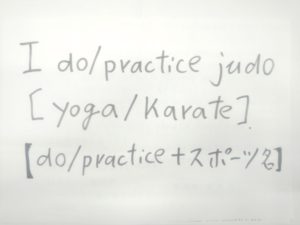 I do/practice judo
[yoga/karate].
【do/practice+スポーツ名】